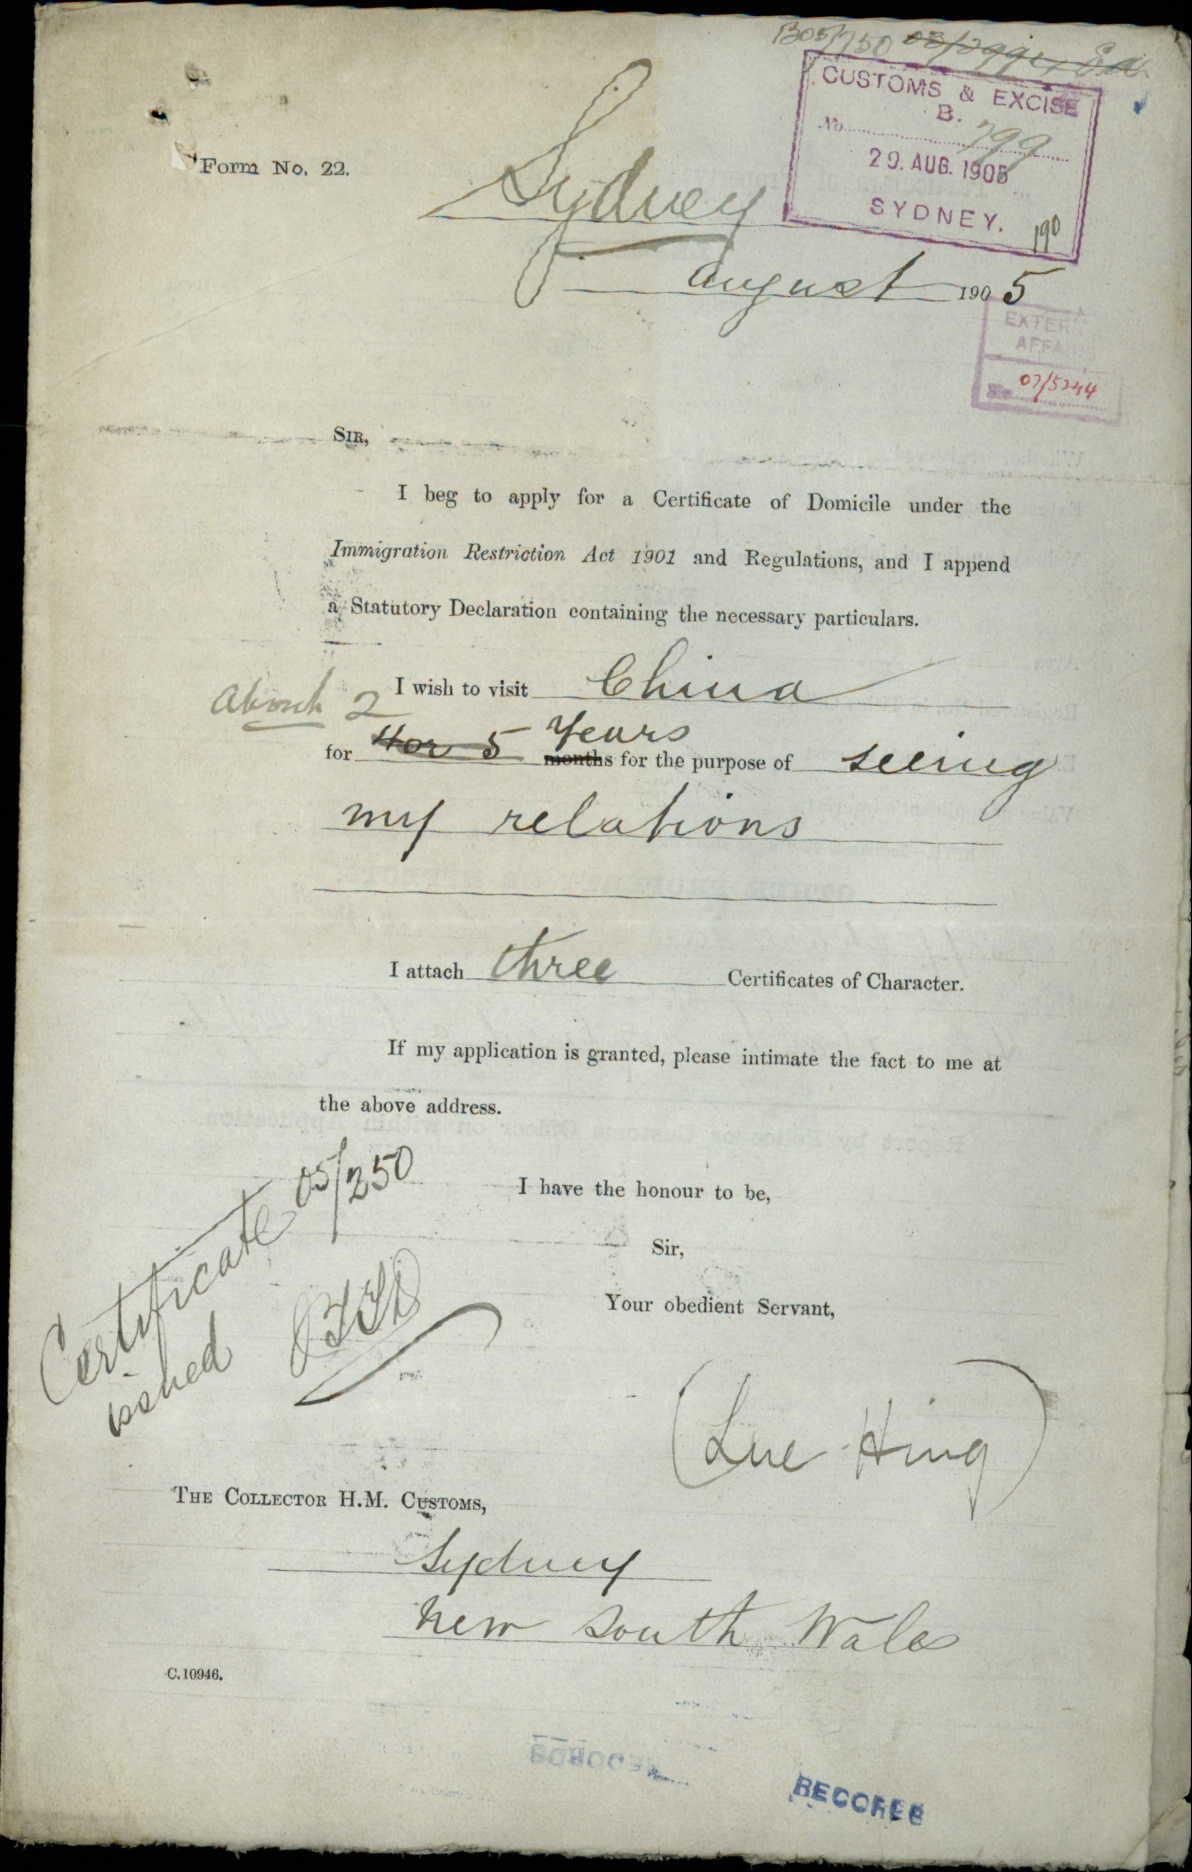 B05/750
CUSTOMS & EXCISE
B.
No. 799
29. AUG. 1905
SYDNEY.
190
Form No. 22.
Sydney
August 1905
EXTER
AFFA
No. 07/5244
SIR,
I beg to apply for a Certificate of Domicile under the
Immigration Restriction Act 1901 and Regulations, and I append
a Statutory Declaration containing the necessary particulars.
I wish to visit China
About 2
for 4 or 5 Years months for the purpose of seeing
my relations
I attach three Certificates of Character.
If my application is granted, please intimate the fact to me at
the above address.
Certificate 05/250
issued
I have the honour to be,
Sir,
Your obedient Servant,
(Lue Hing)
THE COLLECTOR H.M. CUSTOMS,
Sydney
New South Wales
C.10946.
RECORDS